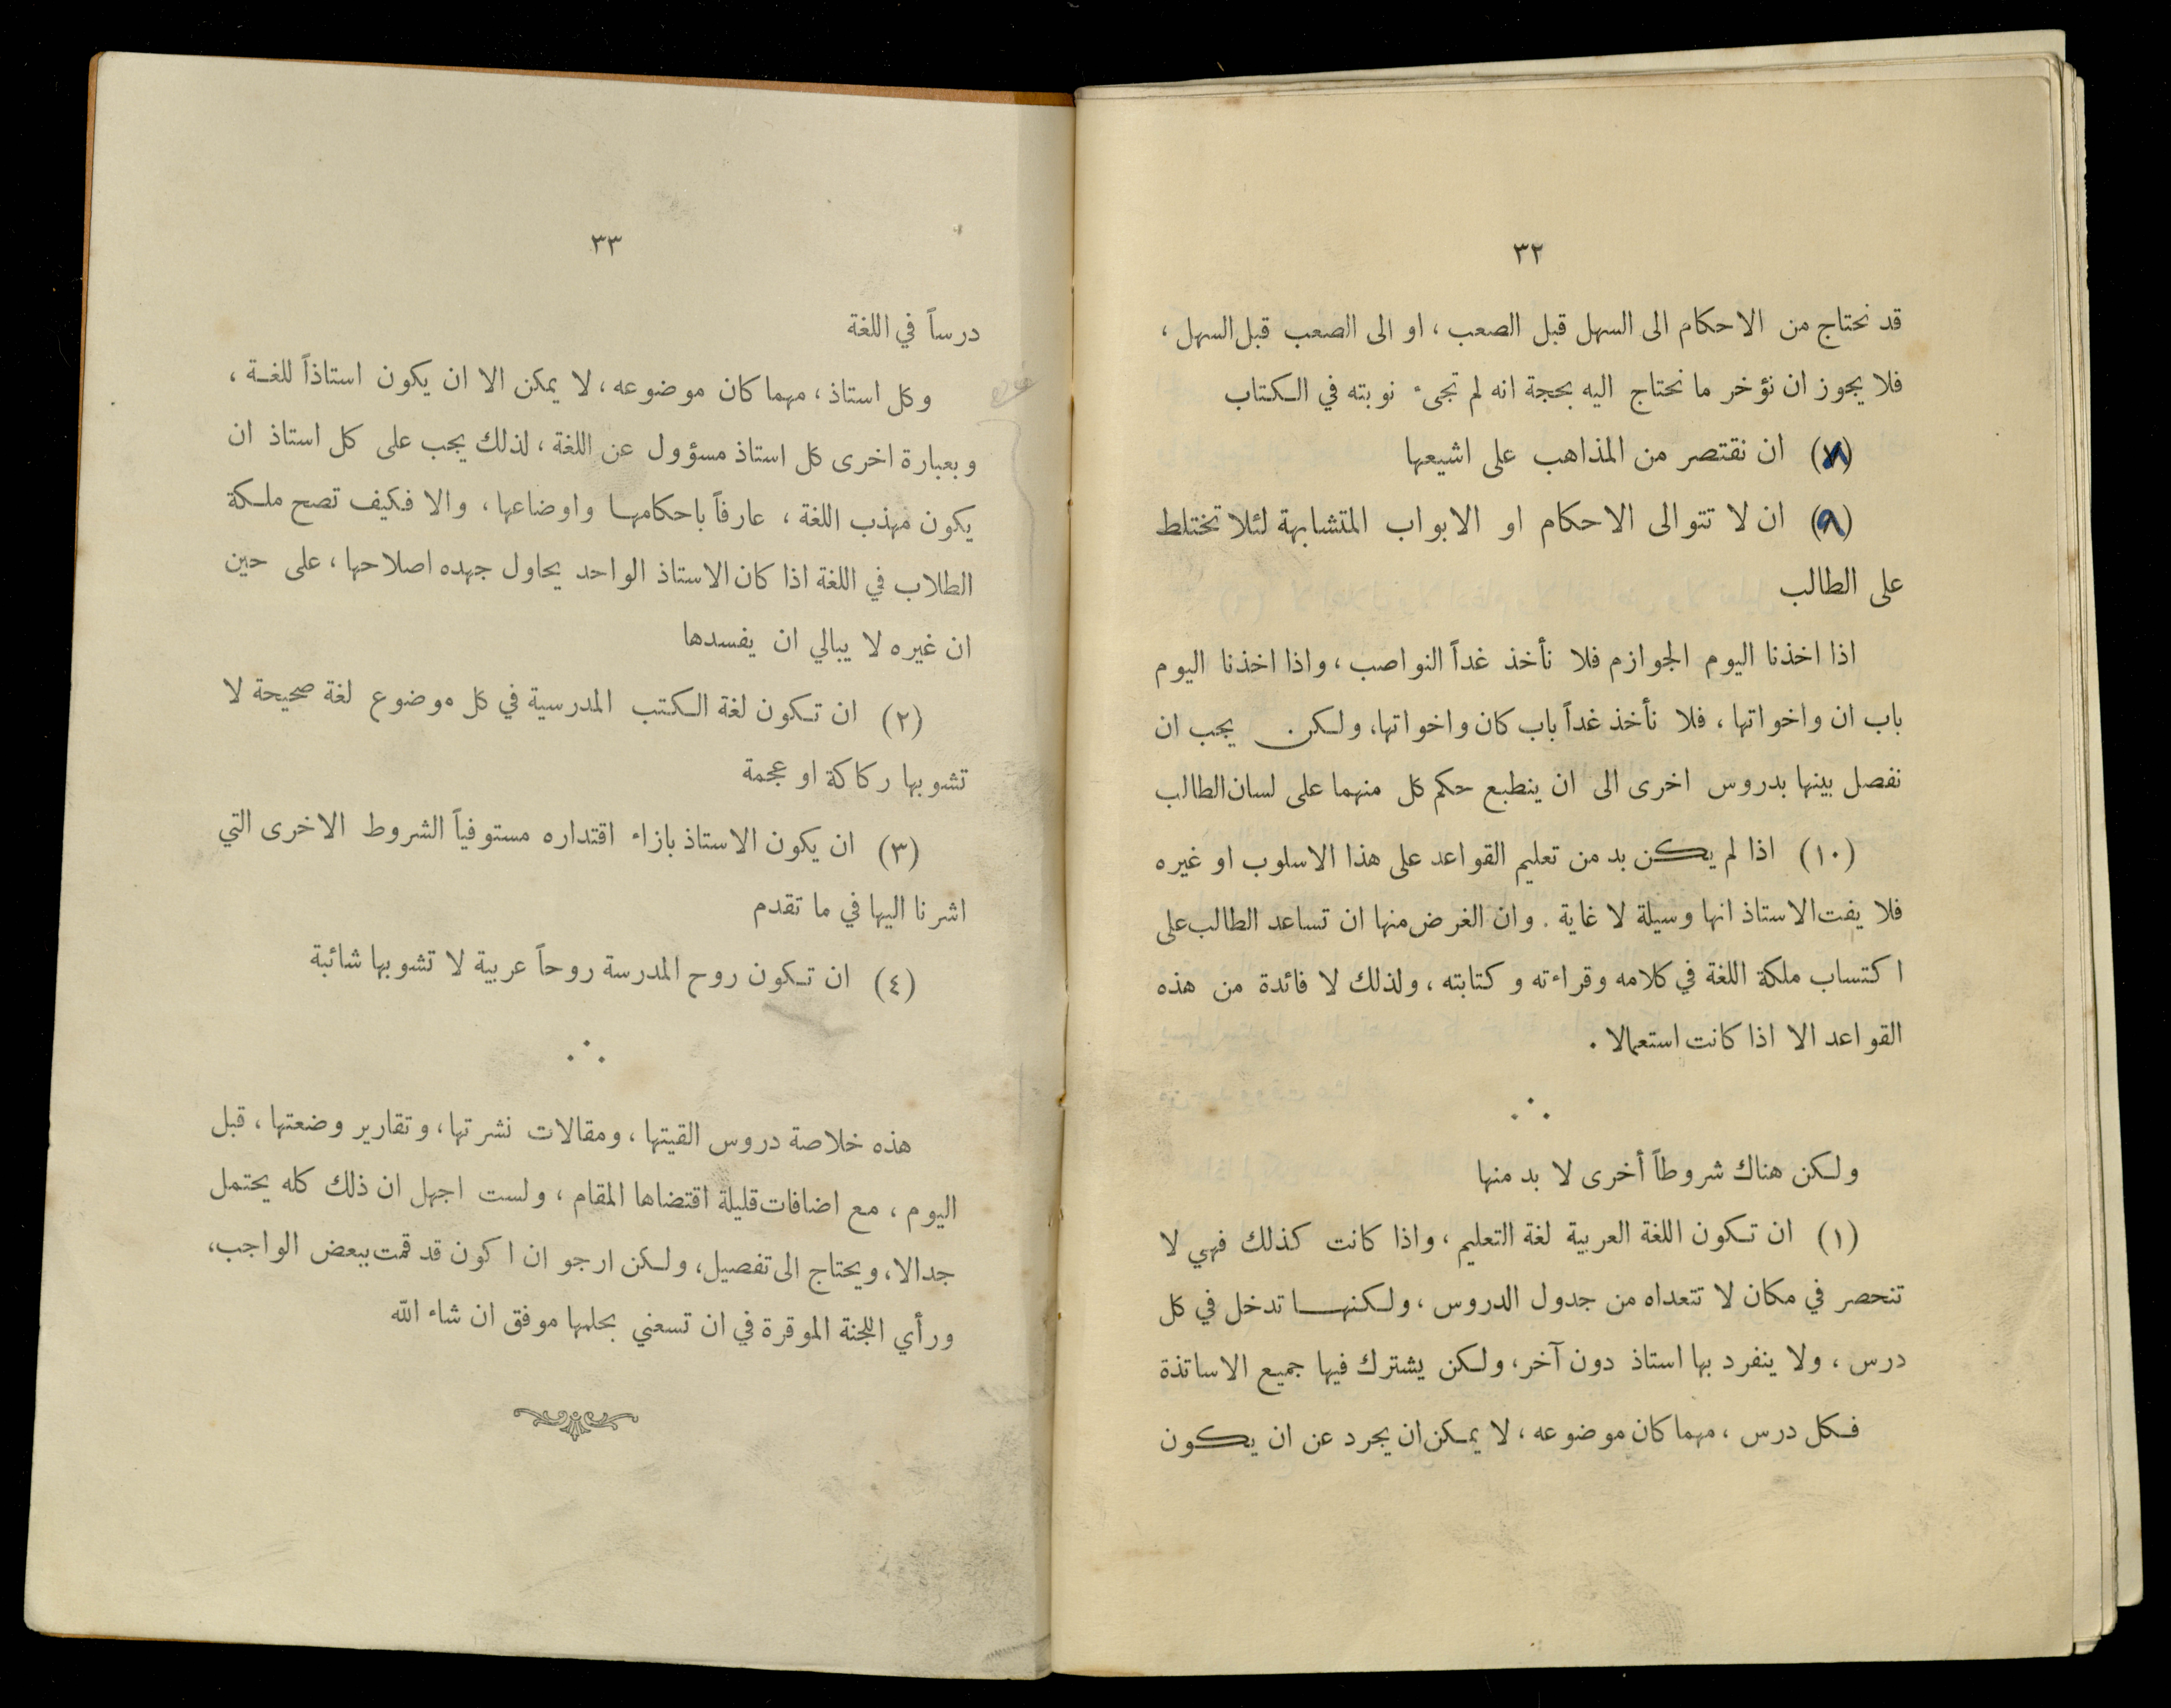 ٣٢
قد نحتاج من الاحكام الى السهل قبل الصعب ، او الى الصعب قبل السهل ،
فلا يجوز ان نؤخر ما نحتاج اليه بحجة انه لم تجىء نوبته في الكتاب
(٨) ان نقتصر من المذاهب على اشيعها
(٩) ان لا تتوالى الاحكام او الابواب المتشابهة لئلا تختلط
على الطالب
اذا اخذنا اليوم الجوازم فلا نأخذ غداً النواصب ، واذا اخذنا اليوم
باب ان واخواتها ، فلا نأخذ غداً باب كان واخواتها، ولكن يجب ان
نفصل بينها بدروس اخرى الى ان ينطبع حكم كل منهما على لسان الطالب
(١٠) اذا لم يكن بد من تعليم القواعد على هذا الاسلوب او غيره
فلا يفت الاستاذ انها وسيلة لا غاية . وان الغرض منها ان تساعد الطالب على
اكتساب ملكة اللغة في كلامه وقراءته وكتابته ، ولذلك لا فائدة من هذه
القواعد الا اذا كانت استعمالا .
ولكن هناك شروطاً أخرى لا بد منها
(١) ان تكون اللغة العربية لغة التعليم ، واذا كانت كذلك فهي لا
تنحصر في مكان لا تتعداه من جدول الدروس ، ولكنها تدخل في كل
درس ، ولا ينفرد بها استاذ دون آخر، ولكن يشترك فيها جميع الاساتذة
فكل درس ، مهما كان موضوعه ، لا يمكن ان يجرد عن ان يكون
٣٣
درساً في اللغة
وكل استاذ ، مهما كان موضوعه ، لا يمكن الا ان يكون استاذاً للغة ،
وبعبارة اخرى كل استاذ مسؤول عن اللغة ، لذلك يجب على كل استاذ ان
يكون مهذب اللغة ، عارفاً باحكامها واوضاعها ، والا فكيف تصح ملكة
الطلاب في اللغة اذا كان الاستاذ الواحد يحاول جهده اصلاحها ، على حين
ان غيره لا يبالي ان يفسدها
(٢) ان تكون لغة الكتب المدرسية في كل موضوع لغة صحيحة لا
تشوبها ركاكة او عجمة
(٣) ان يكون الاستاذ بازاء اقتداره مستوفياً الشروط الاخرى التي
اشرنا اليها في ما تقدم
(٤) ان تكون روح المدرسة روحاً عربية لا تشوبها شائبة
هذه خلاصة دروس القيتها ، ومقالات نشرتها ، وتقارير وضعتها ، قبل
اليوم ، مع اضافات قليلة اقتضاها المقام ، ولست اجهل ان ذلك كله يحتمل
جدالا، ويحتاج الى تفصيل، ولكن ارجو ان اكون قد قمت ببعض الواجب،
ورأي اللجنة الموقرة في ان تسعني بحلمها موفق ان شاء الله